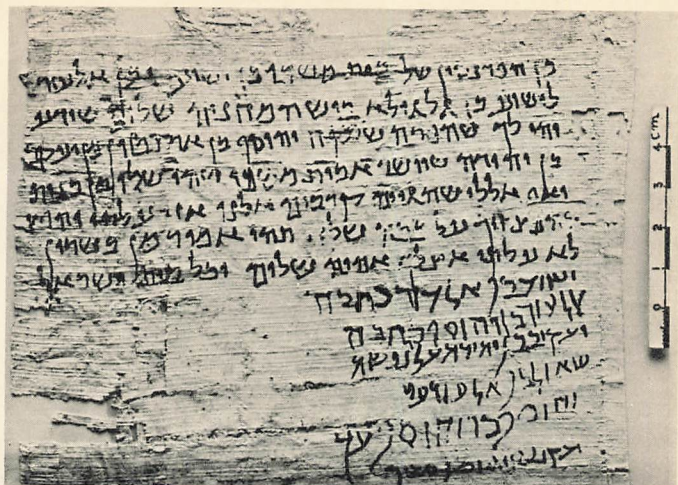 מן הפרנסין של בית משכו מן ישוע ומן אלעזר
לישוע בן גלגלה ריש המחניה שלום שידע
יהי לך שהפרה שלקח יהוסף בן אריסטון מן יעקב
בן יהודה שיושב בית משכו שהי שלו מזבנות
ואללי שהגיים קרבים אלנו אזי עליתי
על ככה שלא תהי אומר מן בשיון
לא עליתי אצלך אהוה שלום וכל בית ישראל
ישוע בן אלעזר כתבה
אלעזר בן יהוסף כתבה
יעקב בן יהודה לנפשה
שאול בן אלעזר עד
יהוסף בר עד
יעקב בן יהוסף מעיד